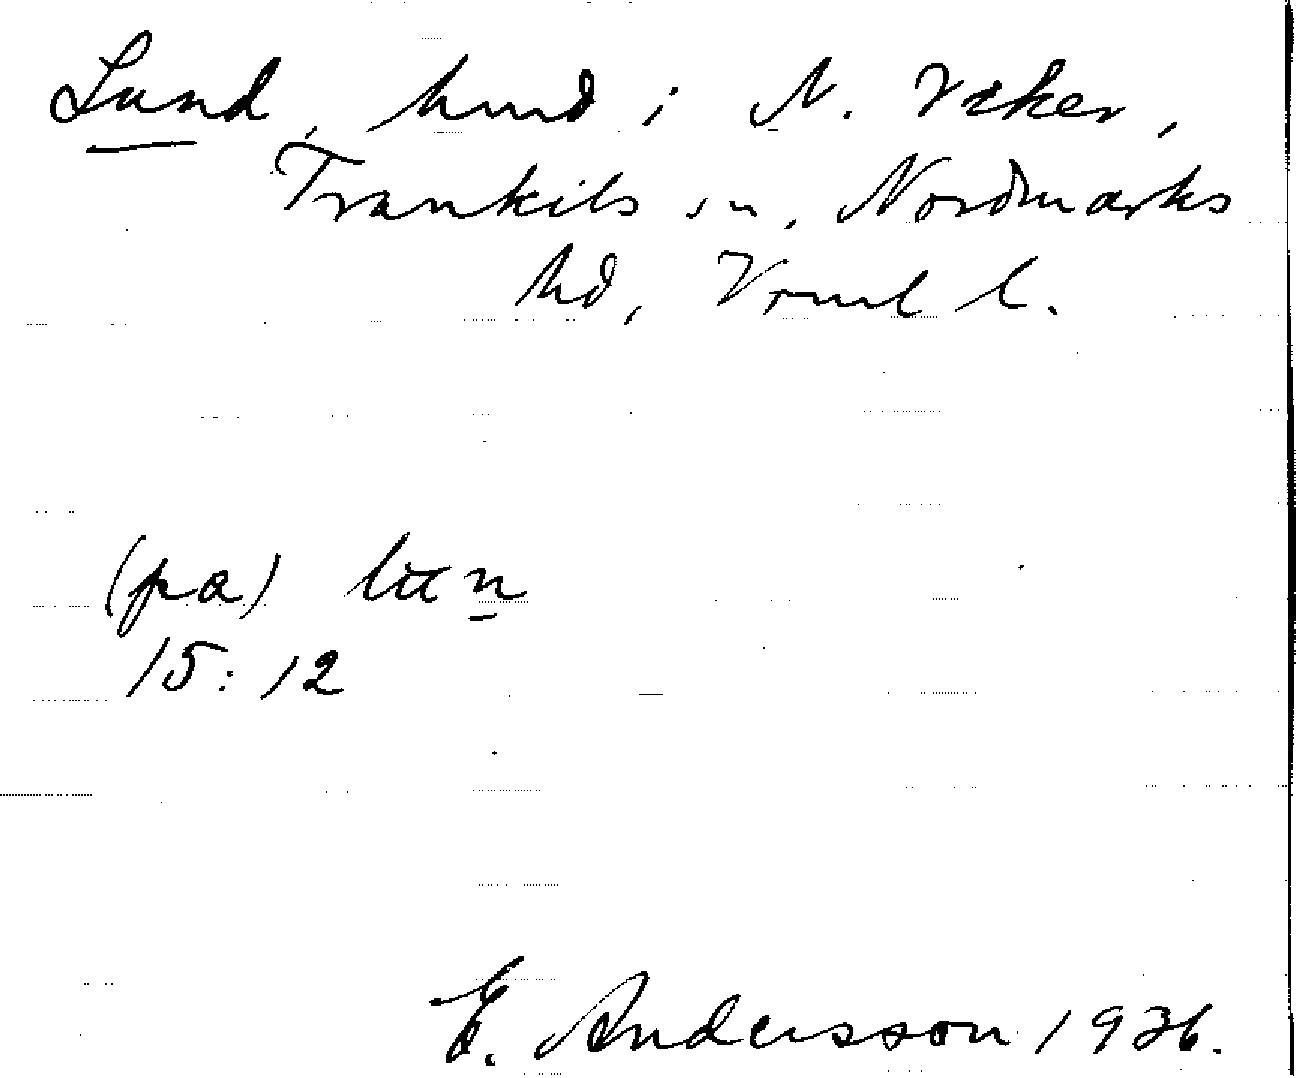 Lund, hmd i N. Väker,
Trankils sn, Nordmarks
hd, Vrml l.
(pa)
15:12
E. Andersson 1936.